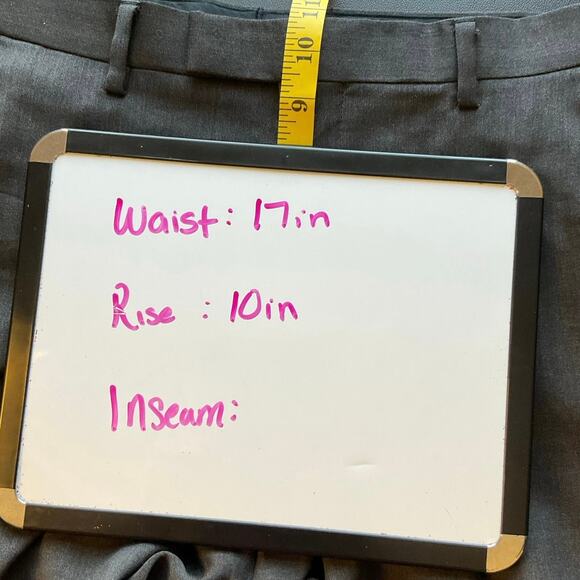 11
10
9
Waist: 17in
Rise : 10in
Inseam: